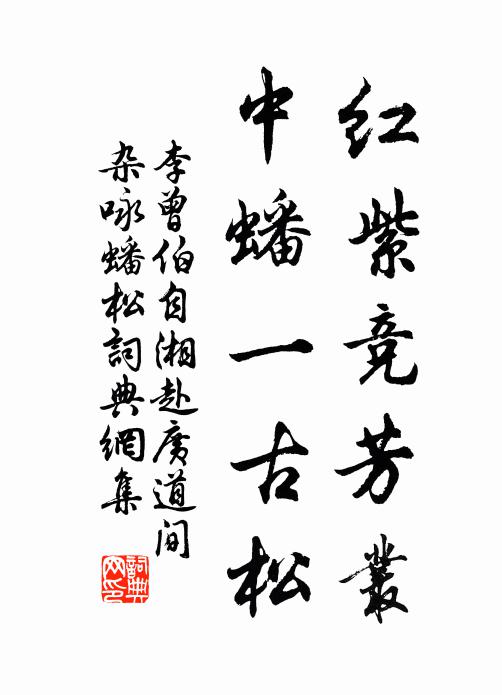 红紫竞芳丛
中蟠一古松
李曾伯自湘赴广道间
杂咏蟠松词典网集
词典网印